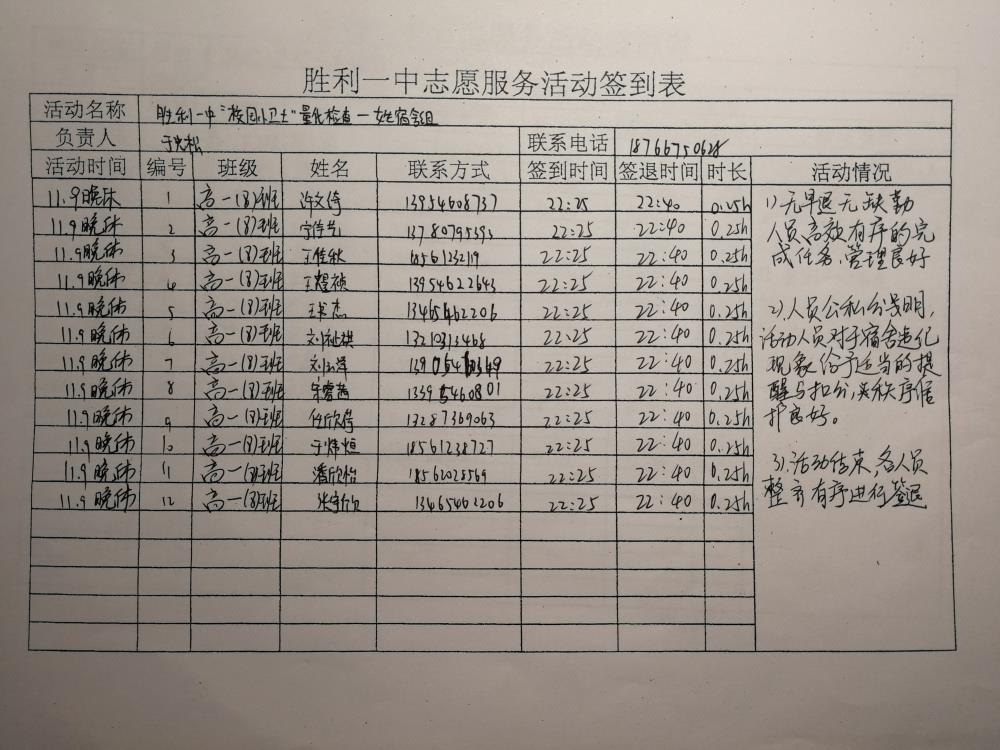 胜利一中志愿服务活动签到表
活动名称 胜利一中"校园小卫士"量化检查一女生宿舍组
负责人 于光松 联系电话 18766750628
活动时间 编号 班级 姓名 联系方式 签到时间 签退时间 时长 活动情况
11.9晚休 1 高一(8)班 许文倚 13954608737 22:25 22:40 0.25h
11.9晚休 2 高一(8)班 13780795393 22:25 22:40 0.25h
11.9晚休 3 高一(8)班 王佳秋 1856123219 22:25 22:40 0.25h
11.9晚休 4 高一(8)班 王煜祯 13954622643 22:25 22:40 0.25h
11.9晚休 5 高一(8)班 13465462206 22:25 22:40 0.25h
11.9晚休 6 高一(8)班 刘祉祺 1321313468 22:25 22:40 0.25h
11.9晚休 7 高一(8)班 22:25 22:40 0.25h
11.9晚休 8 高一(8)班 宋睿茜 13954560801 22:25 22:40 0.25h
11.9晚休 9 高一(8)班 任欣倚 13287369063 22:25 22:40 0.25h
11.9晚休 10 高一(8)班 于炜烜 18561238727 22:25 22:40 0.25h
11.9晚休 11 高一(8)班 潘欣怡 18562028569 22:25 22:40 0.25h
11.9晚休 12 高一(8)班 朱宇欣 13465462206 22:25 22:40 0.25h
1).无早退无缺勤
人员高效有序的完
成任务,管理良好
2).人员公私分明,
活动人员对于宿舍违纪
现象给予适当的提
醒与扣分,其秩序维
护良好。
3).活动结束,各人员
整齐有序进行签退